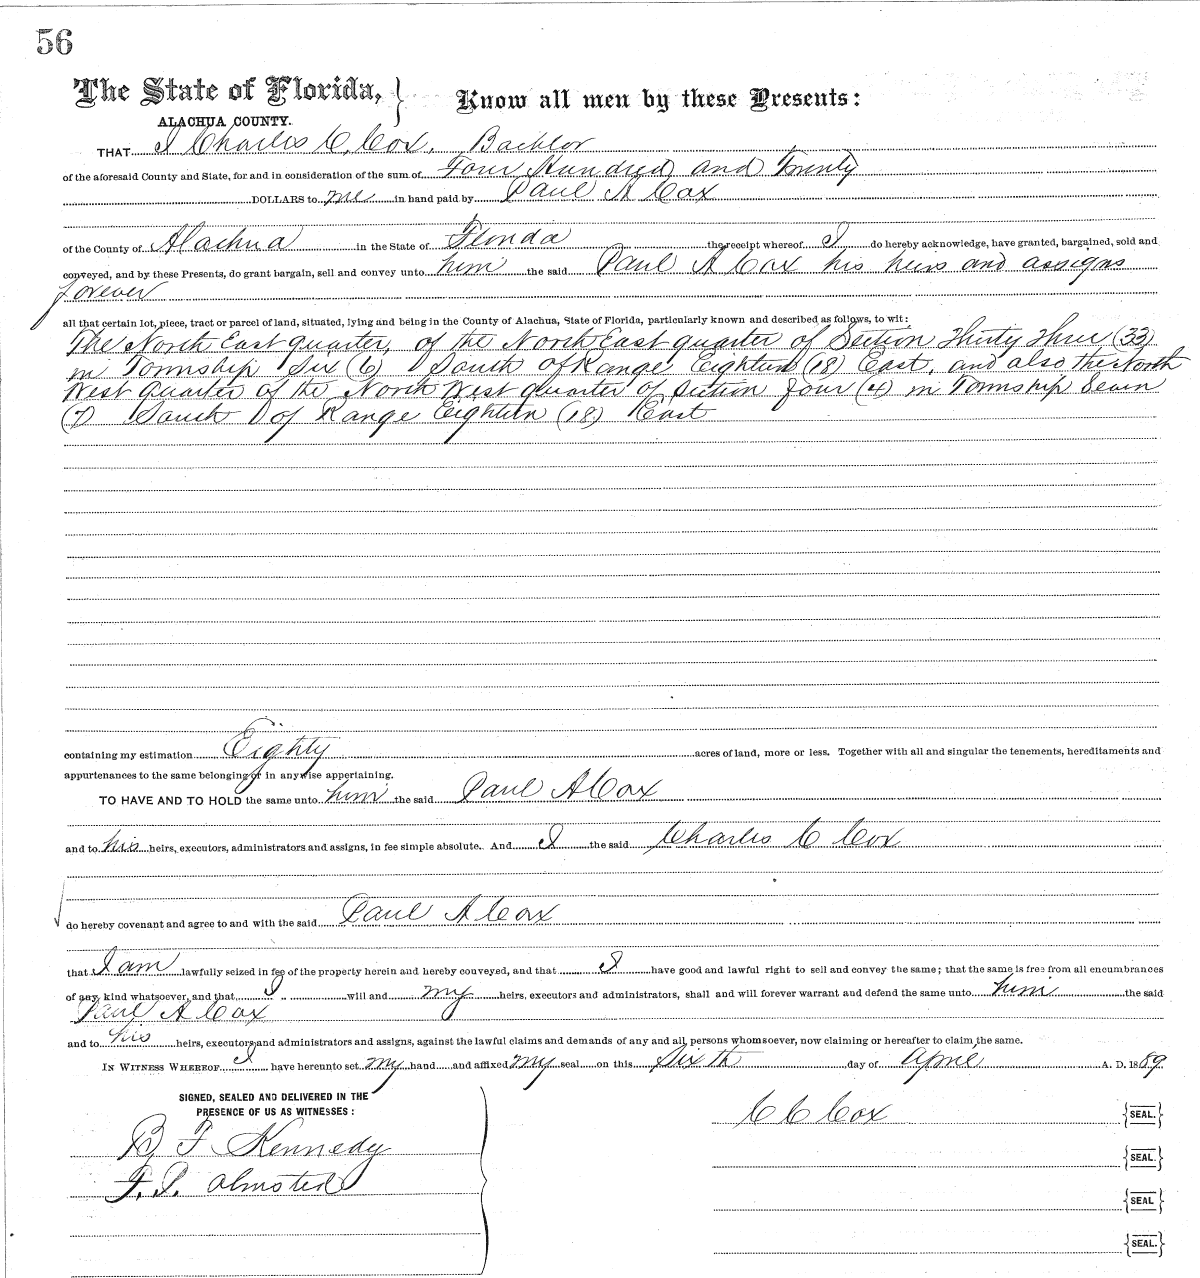 56
The State of Florida, } Know all men by these Presents:
ALACHUA COUNTY.
THAT I Charles C. Cox, Bachlor
of the aforesaid County and State, for and in consideration of the sum of Four Hundred and Twenty
DOLLARS to me in hand paid by Paul A Cox
of the County of Alachua in the State of Florida the receipt whereof I do hereby acknowledge, have granted, bargained, sold and
conveyed, and by these Presents, do grant bargain, sell and convey unto him the said Paul A Cox his heirs and assigns
forever
all that certain lot, piece, tract or parcel of land, situated, lying and being in the County of Alachua, State of Florida, particularly known and described as follows, to wit:
The North East quarter, of the North East quarter of Section Thirty Three (33)
in Township Six (6) South of Range Eighteen (18) East, and also the North
West quarter of the North West quarter of Section four (4) in Township Seven
(7) South of Range Eighteen (18) East
containing my estimation Eighty acres of land, more or less. Together with all and singular the tenements, hereditaments and
appurtenances to the same belonging or in anywise appertaining.
TO HAVE AND TO HOLD the same unto him the said Paul A Cox
and to his heirs, executors, administrators and assigns, in fee simple absolute. And I the said Charles C Cox
do hereby covenant and agree to and with the said Paul A Cox
that I am lawfully seized in fee of the property herein and hereby conveyed, and that I have good and lawful right to sell and convey the same; that the same is free from all encumbrances
of any kind whatsoever, and that I will and my heirs, executors and administrators, shall and will forever warrant and defend the same unto him the said
Paul A Cox
and to his heirs, executors and administrators and assigns, against the lawful claims and demands of any and all persons whomsoever, now claiming or hereafter to claim the same.
IN WITNESS WHEREOF I have hereunto set my hand and affixed my seal on this Sixth day of April A. D. 1889
SIGNED, SEALED AND DELIVERED IN THE
PRESENCE OF US AS WITNESSES:
C C Cox {SEAL.}
B F Kennedy
{SEAL.}
F. P. Olmsted
{SEAL}
{SEAL.}